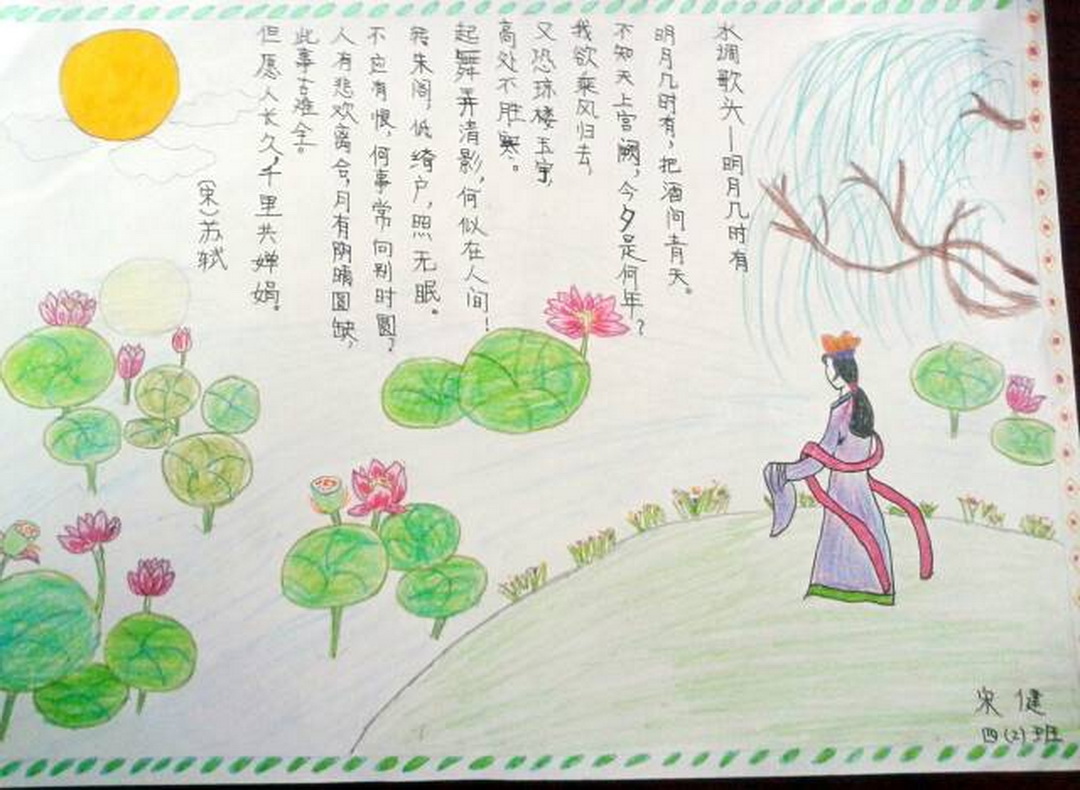 水调歌头—明月几时有
明月几时有,把酒问青天。
不知天上宫阙,今夕是何年?
我欲乘风归去,
又恐琼楼玉宇,
高处不胜寒。
起舞弄清影,何似在人间!
转朱阁,低绮户,照无眠。
不应有恨,何事常向别时圆?
人有悲欢离合,月有阴晴圆缺,
此事古难全。
但愿人长久,千里共婵娟。
(宋)苏轼
宋健
四(2)班